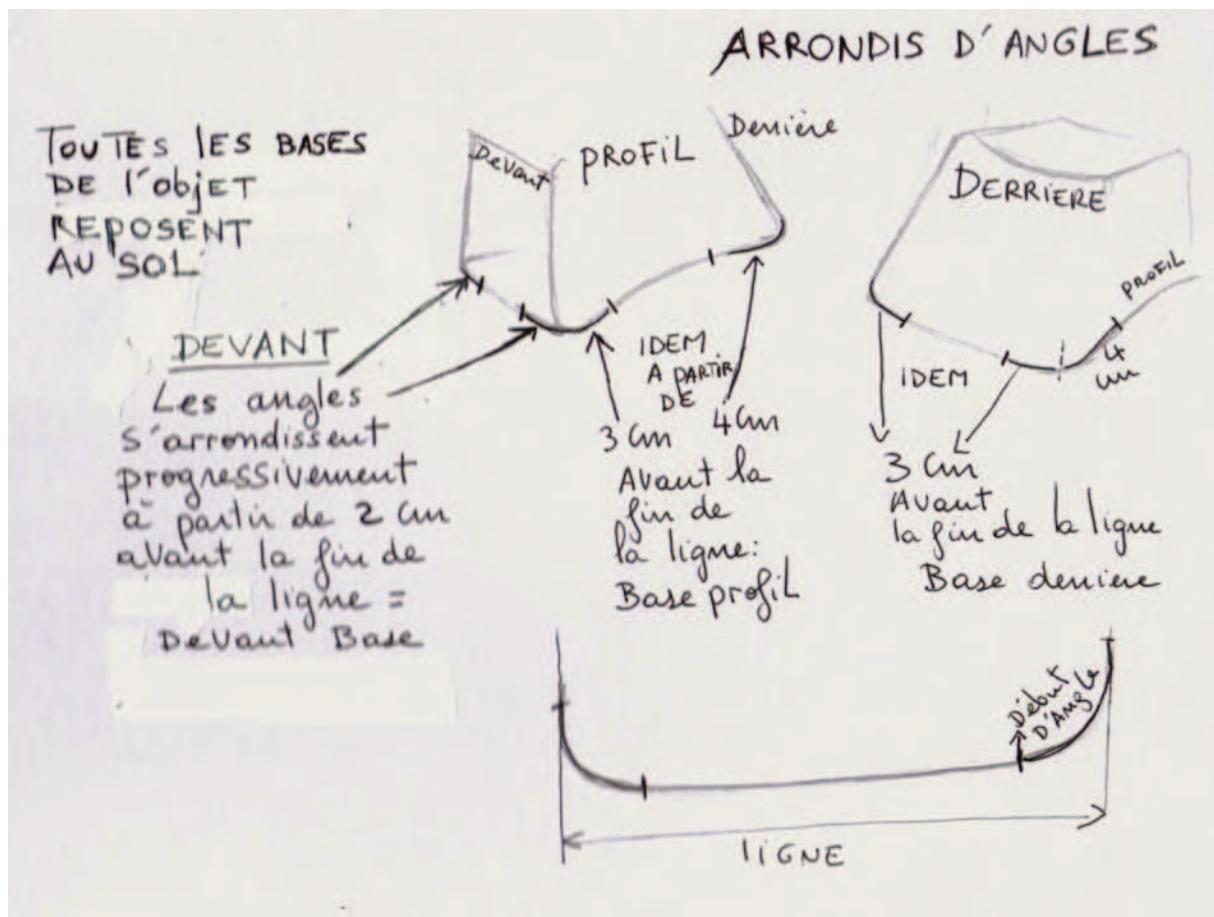 ARRONDIS D'ANGLES
TOUTES LES BASES
DE l'objET
REPOSENT
AU SOL
Devant
PROFIL
Derrière
DERRIERE
PROFIL
DEVANT
Les angles
s'arrondissent
progressivement
à partir de 2 cm
avant la fin de
la ligne =
Devant Base
IDEM
A PARTIR
DE
3 cm
4 cm
Avant la
fin de
la ligne:
Base profil
IDEM
4
cm
3 cm
Avant
la fin de la ligne
Base derrière
Début
D'Angle
lIGNE